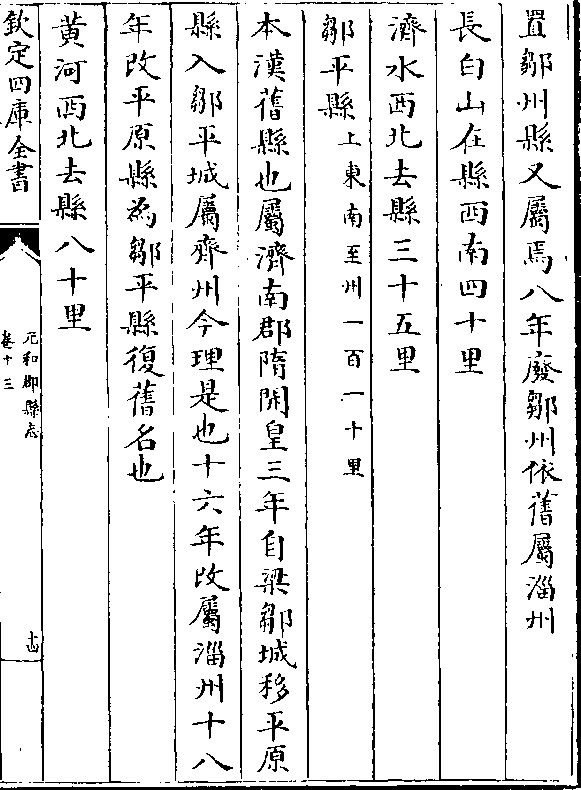 置鄒州縣又屬焉八年廢鄒州依舊屬淄州
長白山在縣西南四十里
濟水西北去縣三十五里
鄒平縣上東南至州一百一十里
本漢舊縣也屬濟南郡隋開皇三年自梁鄒城移平原
縣入鄒平城屬齊州今理是也十六年改屬淄州十八
年改平原縣為鄒平縣復舊名也
黃河西北去縣八十里
欽定四庫全書
元和郡縣志
卷十三
十四